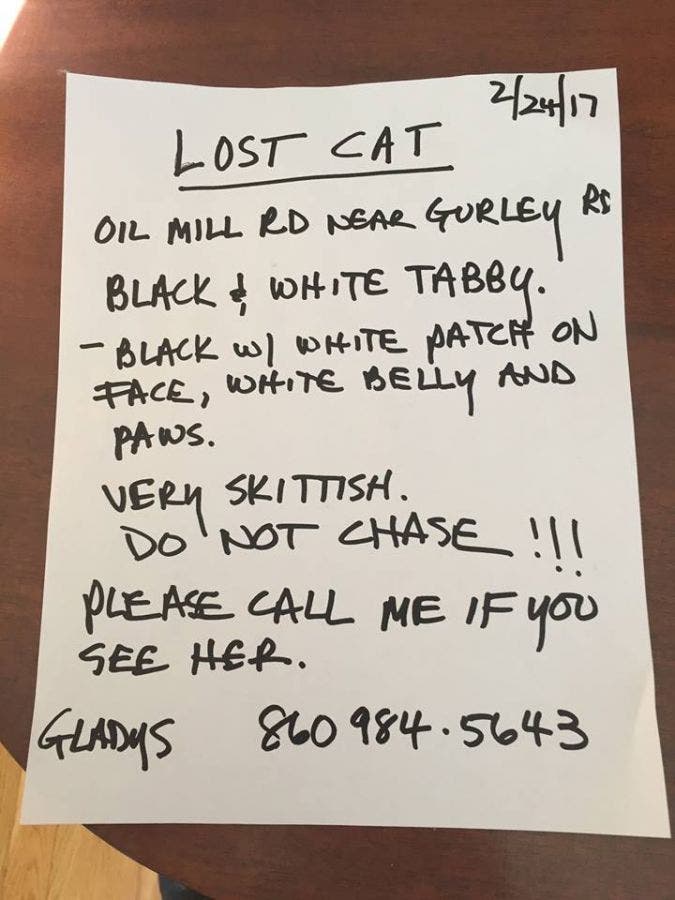 2/24/17
LOST CAT
OIL MILL RD NEAR GURLEY RD
BLACK & WHITE TABBY.
- BLACK W/ WHITE PATCH ON
FACE, WHITE BELLY AND
PAWS.
VERY SKITTISH.
DO NOT CHASE !!!
PLEASE CALL ME IF YOU
SEE HER.
GLADYS 860 984.5643